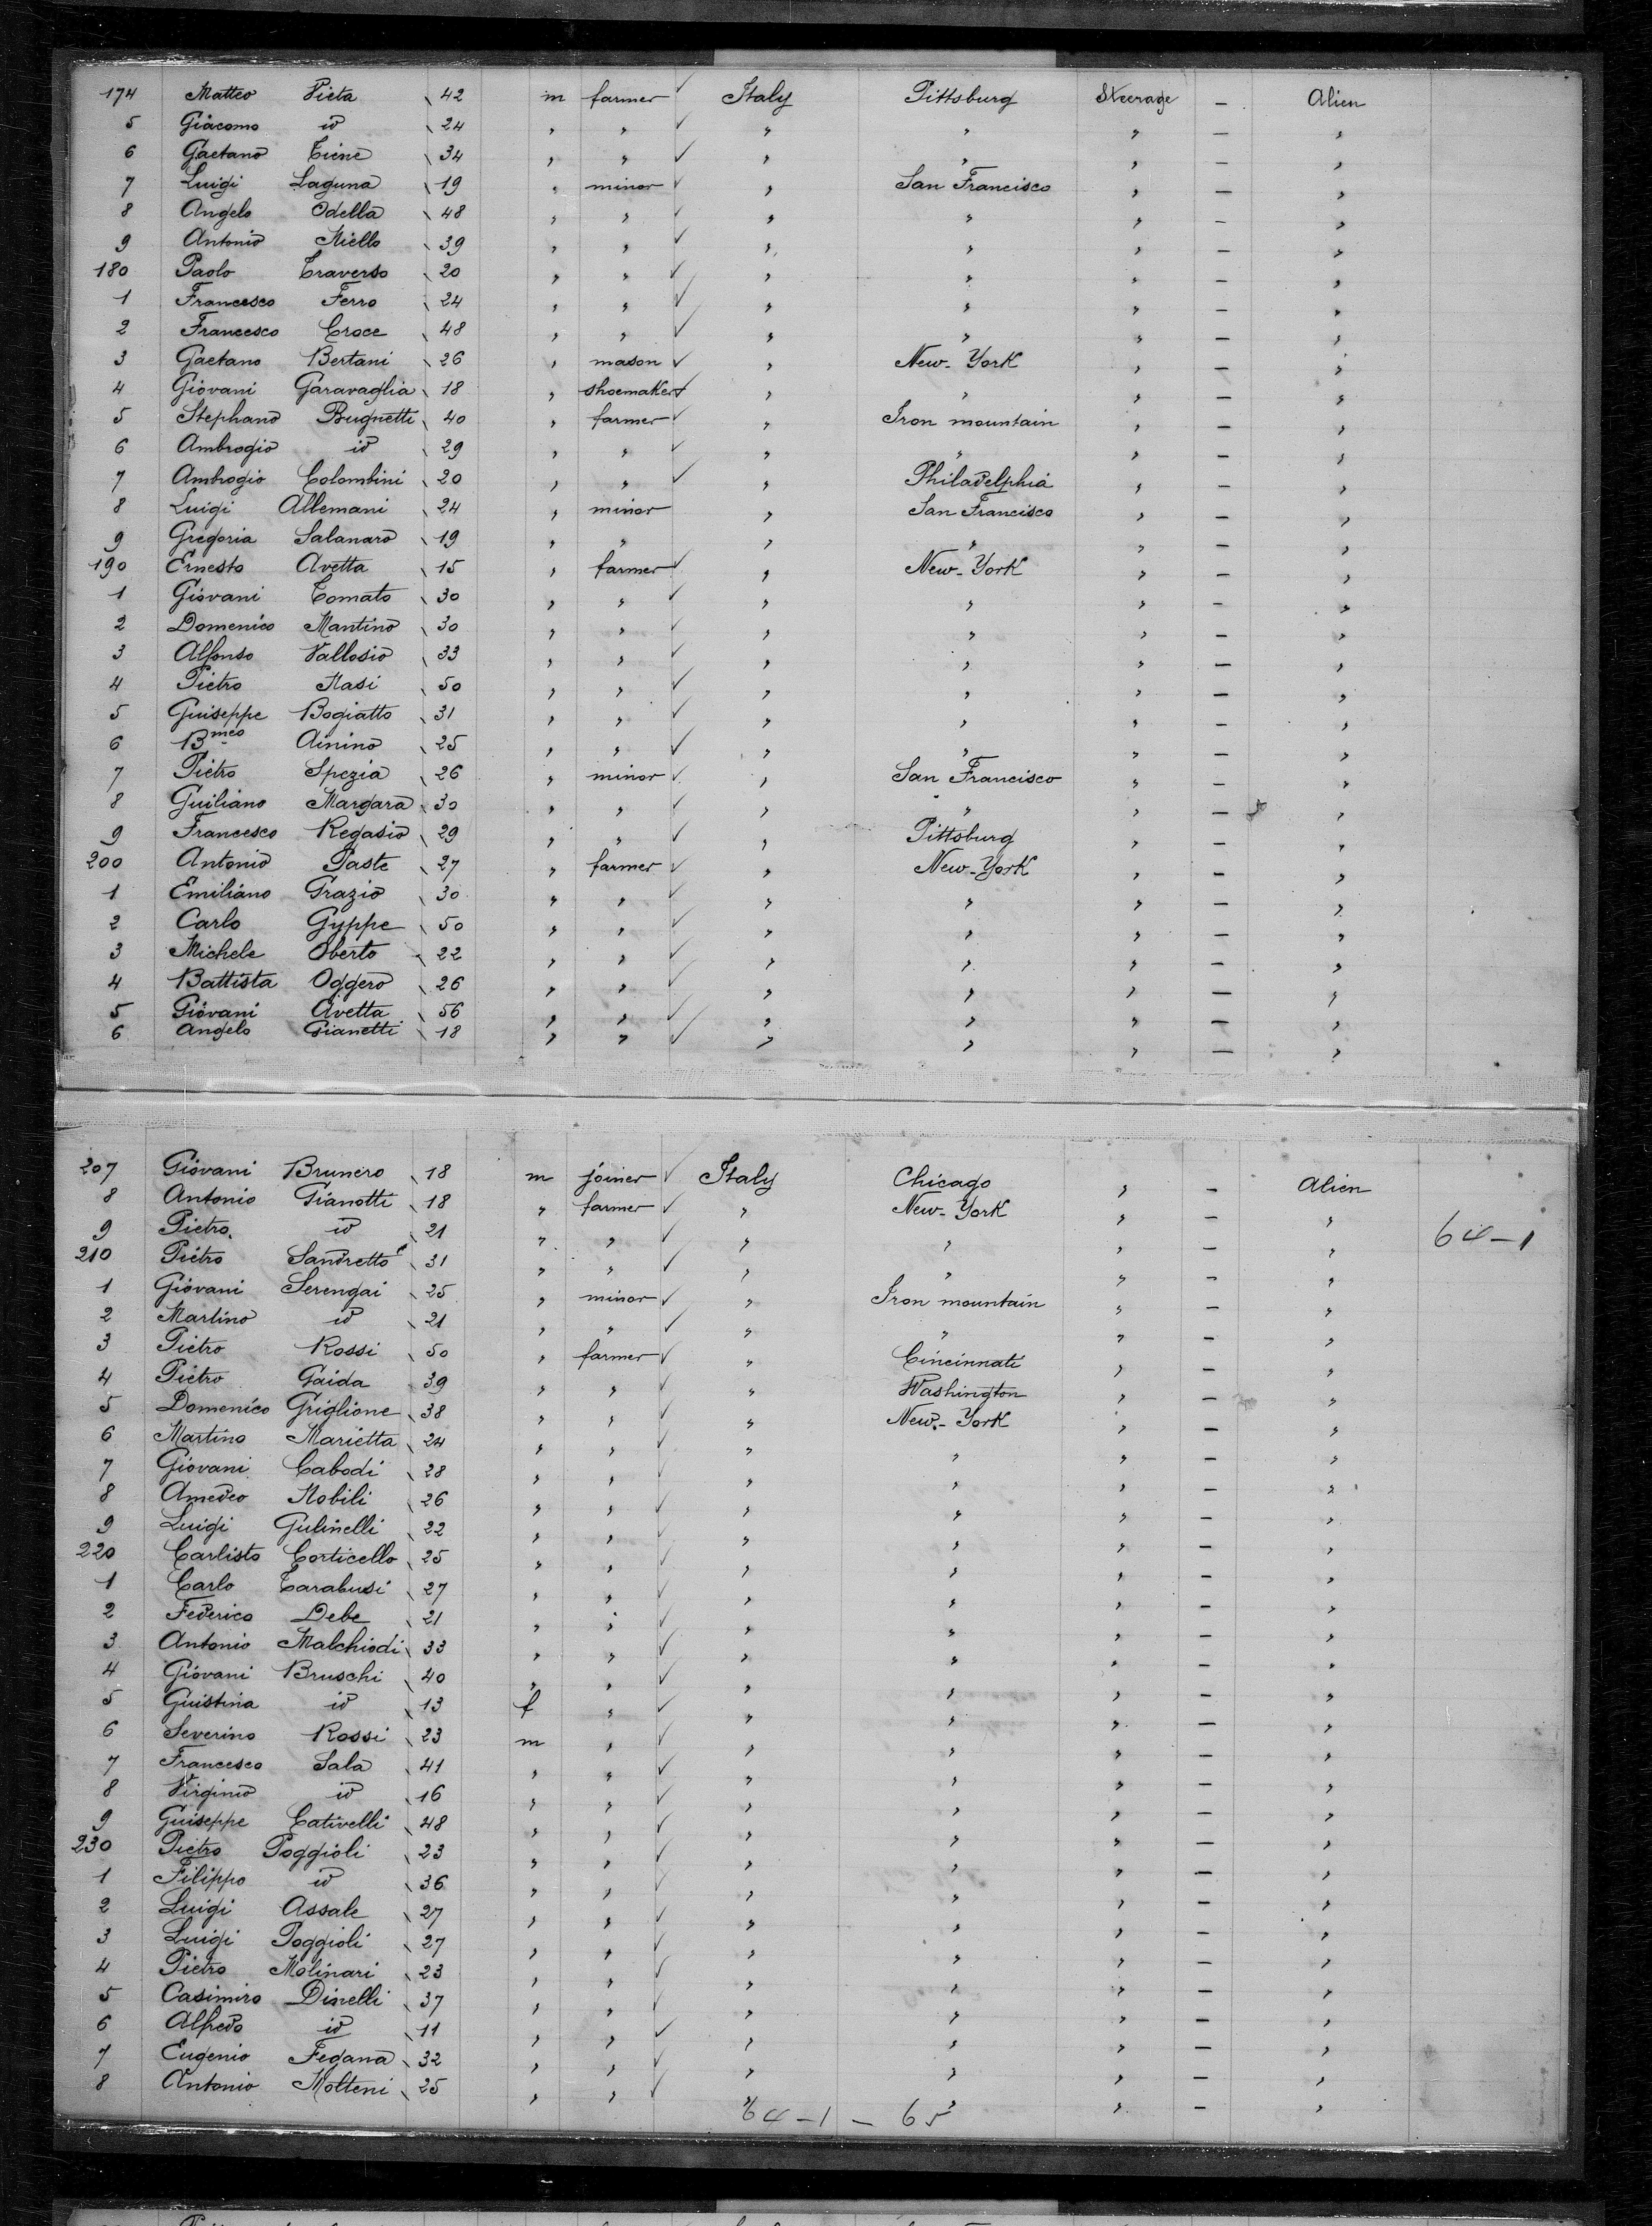 174 Matteo Pieta 42 m farmer Italy Pittsburg Steerage - Alien
5 Giacomo id 24 " " " " " - "
6 Gaetano Ciene 34 " " " " " - "
7 Luigi Laguna 19 " minor " San Francisco " - "
8 Angelo Odella 48 " " " " " - "
9 Antonio Aiello 39 " " " " " - "
180 Paolo Traverso 20 " " " " " - "
1 Francesco Ferro 24 " " " " " - "
2 Francesco Croce 48 " " " " " - "
3 Gaetano Bertani 26 " mason " New-York " - "
4 Giovani Garavaglia 18 " shoemaker " " " - "
5 Stephano Bugnetti 40 " farmer " Iron mountain " - "
6 Ambrogio id 29 " " " " " - "
7 Ambrogio Colombini 20 " " " Philadelphia " - "
8 Luigi Allemani 24 " minor " San Francisco " - "
9 Gregoria Salanaro 19 " " " " " - "
190 Ernesto Avetta 15 " farmer " New-York " - "
1 Giovani Comato 30 " " " " " - "
2 Domenico Mantino 30 " " " " " - "
3 Alfonso Vallosio 33 " " " " " - "
4 Pietro Nasi 50 " " " " " - "
5 Guiseppe Bogiatto 31 " " " " " - "
6 Bmeo Ainino 25 " " " " " - "
7 Pietro Spezia 26 " minor " San Francisco " - "
8 Guiliano Margara 30 " " " " " - "
9 Francesco Regasio 29 " " " Pittsburg " - "
200 Antonio Paste 27 " farmer " New-York " - "
1 Emiliano Grazio 30 " " " " " - "
2 Carlo Gyppe 50 " " " " " - "
3 Michele Oberto 22 " " " " " - "
4 Battista Oggero 26 " " " " " - "
5 Giovani Avetta 56 " " " " " - "
6 Angelo Gianetti 18 " " " " " - "
207 Giovani Brunero 18 m joiner Italy Chicago " - Alien
8 Antonio Gianotti 18 " farmer " New-York " - "
9 Pietro id 21 " " " " " - " 64-1
210 Pietro Sandretto 31 " " " " " - "
1 Giovani Serengai 25 " minor " Iron mountain " - "
2 Martino id 21 " " " " " - "
3 Pietro Rossi 50 " farmer " Cincinnati " - "
4 Pietro Gaida 39 " " " Washington " - "
5 Domenico Griglione 38 " " " New-York " - "
6 Martino Marietta 24 " " " " " - "
7 Giovani Cabodi 28 " " " " " - "
8 Amedeo Nobili 26 " " " " " - "
9 Luigi Gulinelli 22 " " " " " - "
220 Carlisto Corticello 25 " " " " " - "
1 Carlo Tarabusi 27 " " " " " - "
2 Federico Debe 21 " " " " " - "
3 Antonio Malchiodi 33 " " " " " - "
4 Giovani Bruschi 40 " " " " " - "
5 Guistina id 13 f " " " " - "
6 Severino Rossi 23 m " " " " - "
7 Francesco Sala 41 " " " " " - "
8 Virginio id 16 " " " " " - "
9 Guiseppe Cativelli 48 " " " " " - "
230 Pietro Poggioli 23 " " " " " - "
1 Filippo id 36 " " " " " - "
2 Luigi Assale 27 " " " " " - "
3 Luigi Poggioli 27 " " " " " - "
4 Pietro Molinari 23 " " " " " - "
5 Casimiro Dinelli 37 " " " " " - "
6 Alfredo id 11 " " " " " - "
7 Eugenio Fegana 32 " " " " " - "
8 Antonio Molteni 25 " " " " " - "
64-1 - 65